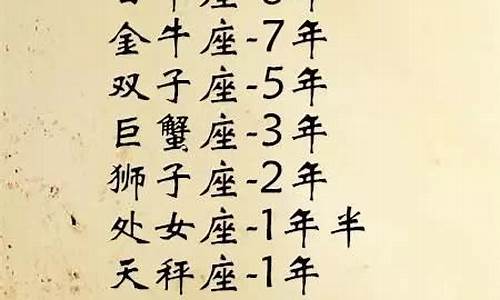 金牛座-7年
双子座-5年
巨蟹座-3年
狮子座-2年
处女座-1年半
天秤座-1年